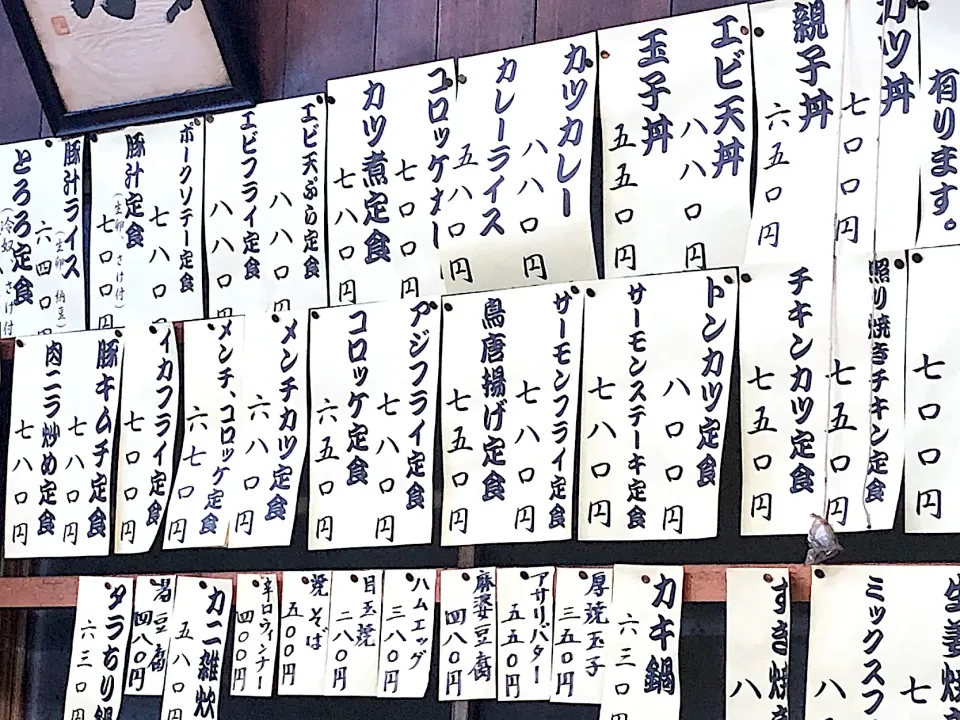 有ります。
カツ丼
七〇〇円
親子丼
六五〇円
エビ天丼
八八〇円
玉子丼
五五〇円
カツカレー
八八〇円
カレーライス
五八〇円
コロッケカレー
七〇〇円
カツ煮定食
七八〇円
エビ天ぷら定食
八八〇
エビフライ定食
八八〇円
ポークソテー定食
七八〇
豚汁定食
(生卵、さけ付)
七〇〇円
豚汁ライス
(生卵 納豆)
六四〇円
とろろ定食
(冷奴、さけ付
七〇〇円
照り焼きチキン定食
七五〇円
チキンカツ定食
七五〇円
トンカツ定食
八〇〇円
サーモンステーキ定食
七八〇円
サーモンフライ定食
七八〇円
鳥唐揚げ定食
七五〇円
アジフライ定食
七八〇円
コロッケ定食
六五〇円
メンチカツ定食
六八〇円
メンチ、コロッケ定食
六七〇円
イカフライ定食
七〇〇円
豚キムチ定食
七八〇円
肉ニラ炒め定食
七八〇円
生姜焼
七
ミックスフ
八
すき焼
八
カキ鍋
六三〇
厚焼玉子
三五〇円
アサリバター
五五〇円
麻婆豆腐
四八〇円
ハムエッグ
三八〇円
目玉焼
二八〇円
焼そば
五〇〇円
辛口ウィンナー
四〇〇円
カニ雑炊
五八〇円
湯豆腐
四八〇円
タラちり鍋
六三〇円